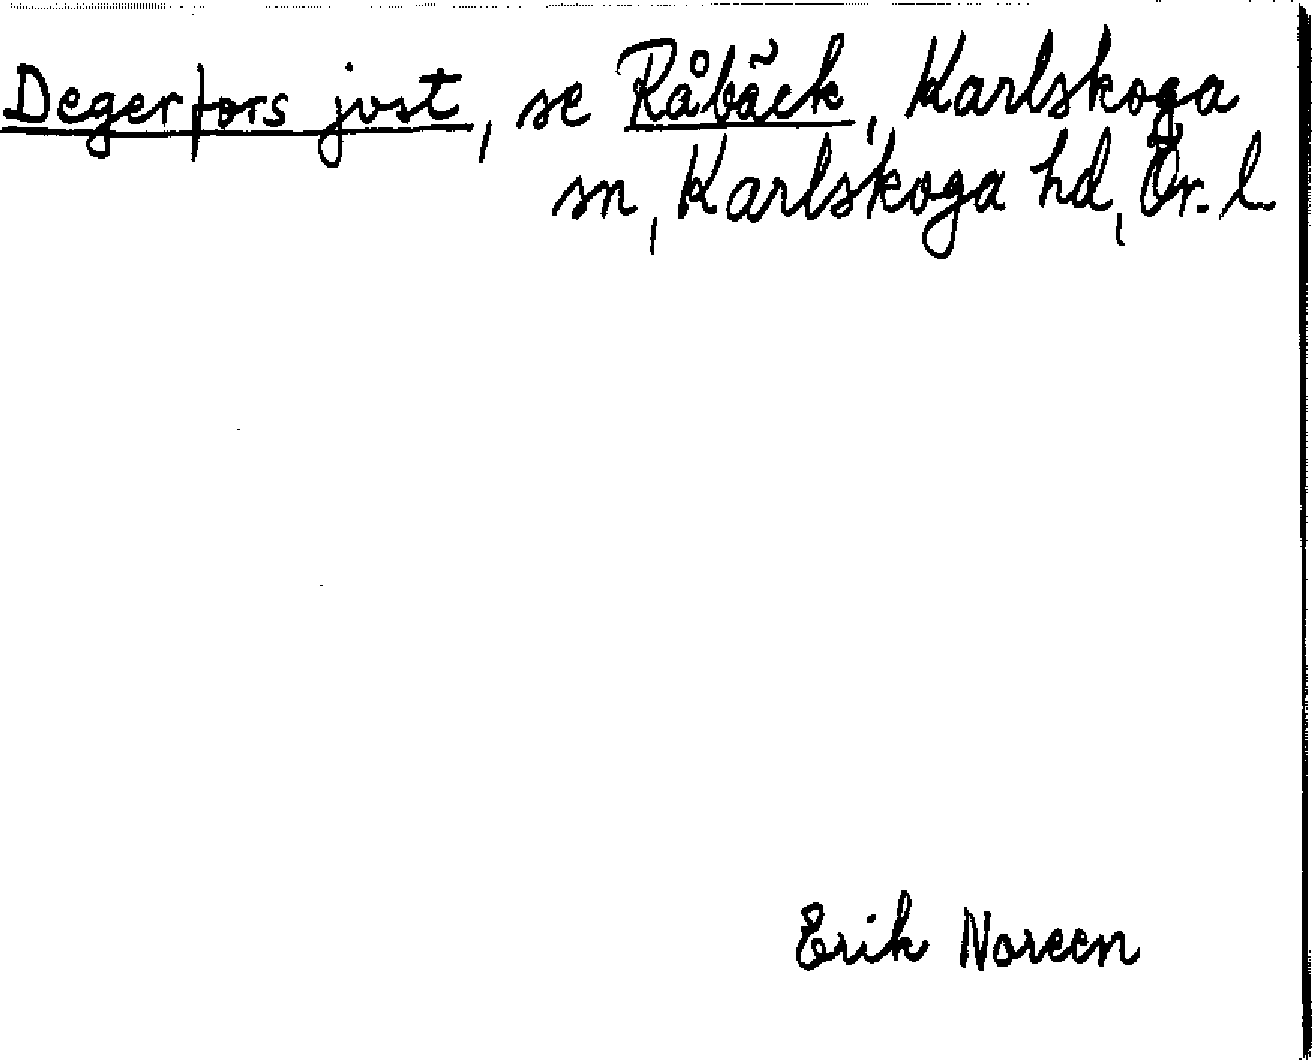 Degerfors jvst, se Råbäck, Karlskoga
sn, Karlskoga hd, Ör. l
Erik Noreen